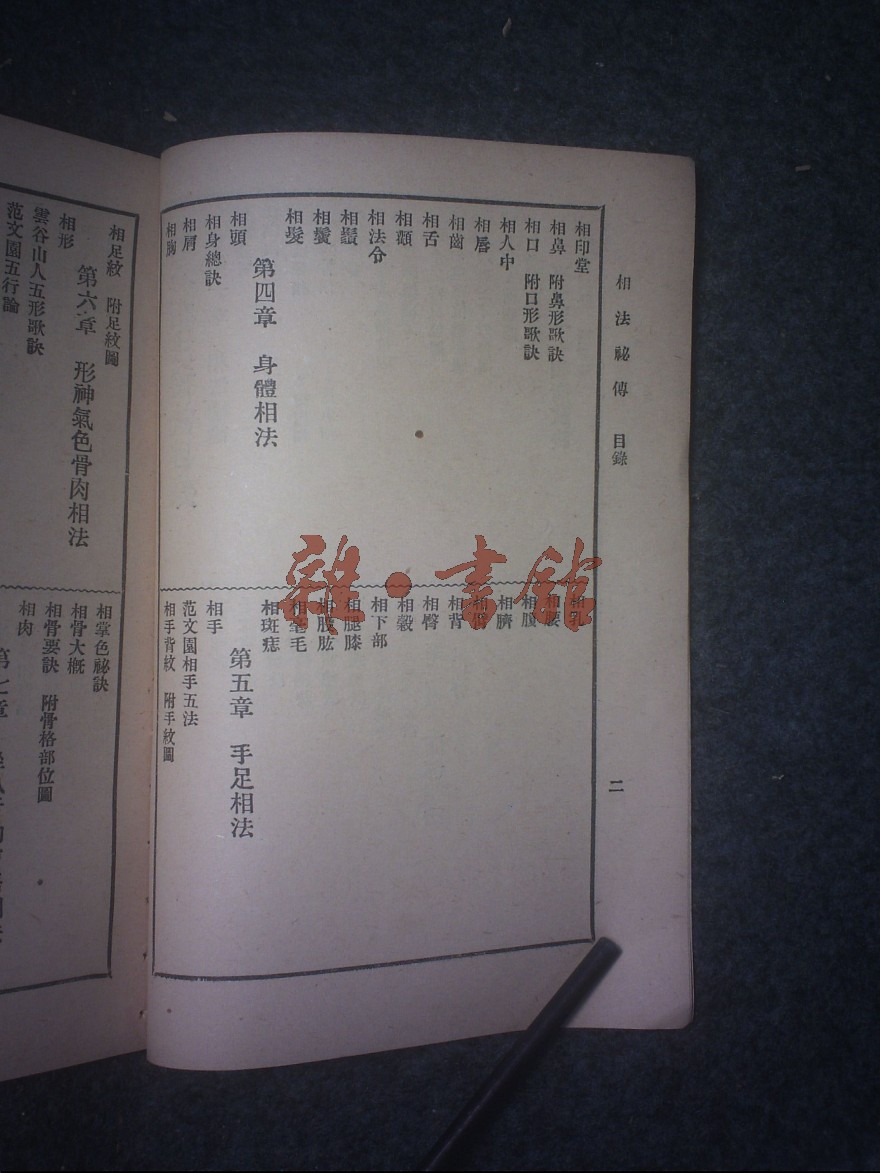 相法祕傳 目錄
二
相印堂
相鼻 附鼻形歌訣
相口 附口形歌訣
相人中
相唇
相齒
相舌
相頦
相法令
相鬚
相鬢
相髮
第四章 身體相法
相頭
相身總訣
相肩
相胸
相乳
相腰
相腹
相臍
相背
相臀
相穀
相下部
相腿膝
相股肱
相毫毛
相斑痣
第五章 手足相法
相手
范文園相手五法
相手背紋 附手紋圖
相足紋 附足紋圖
第六章 形神氣色骨肉相法
相形
雲谷山人五形歌訣
范文園五行論
相掌色祕訣
相骨大概
相骨要訣 附骨格部位圖
相肉
雜·書館